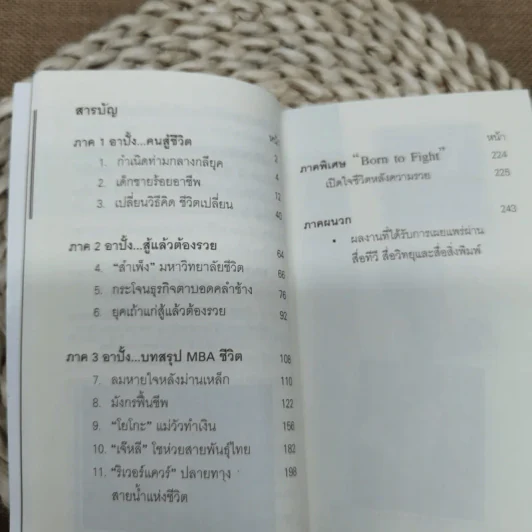 สารบัญ
หน้า
ภาค 1 อาบั้ง...คนสู้ชีวิต 2
1. กำเนิดท่ามกลางกลียุค 4
2. เด็กชายร้อยอาชีพ 12
3. เปลี่ยนวิธีคิด ชีวิตเปลี่ยน 40
ภาค 2 อาบั้ง...สู้แล้วต้องรวย 64
4. “สำเพ็ง” มหาวิทยาลัยชีวิต 66
5. กระโจนธุรกิจตาบอดคลำช้าง 76
6. ยุคเถ้าแก่สู้แล้วต้องรวย 92
ภาค 3 อาบั้ง...บทสรุป MBA ชีวิต 108
7. ลมหายใจหลังม่านเหล็ก 110
8. มังกรฟื้นชีพ 122
9. “โยโกะ” แม่วัวทำเงิน 156
10. “เจ๊หลี” โชห่วยสายพันธุ์ไทย 182
11. “ริเวอร์แควร์” ปลายทาง 198
สายน้ำแห่งชีวิต
หน้า
ภาคพิเศษ “Born to Fight” 224
เปิดใจชีวิตหลังความรวย 225
ภาคผนวก 243
• ผลงานที่ได้รับการเผยแพร่ผ่าน
สื่อทีวี สื่อวิทยุและสื่อสิ่งพิมพ์